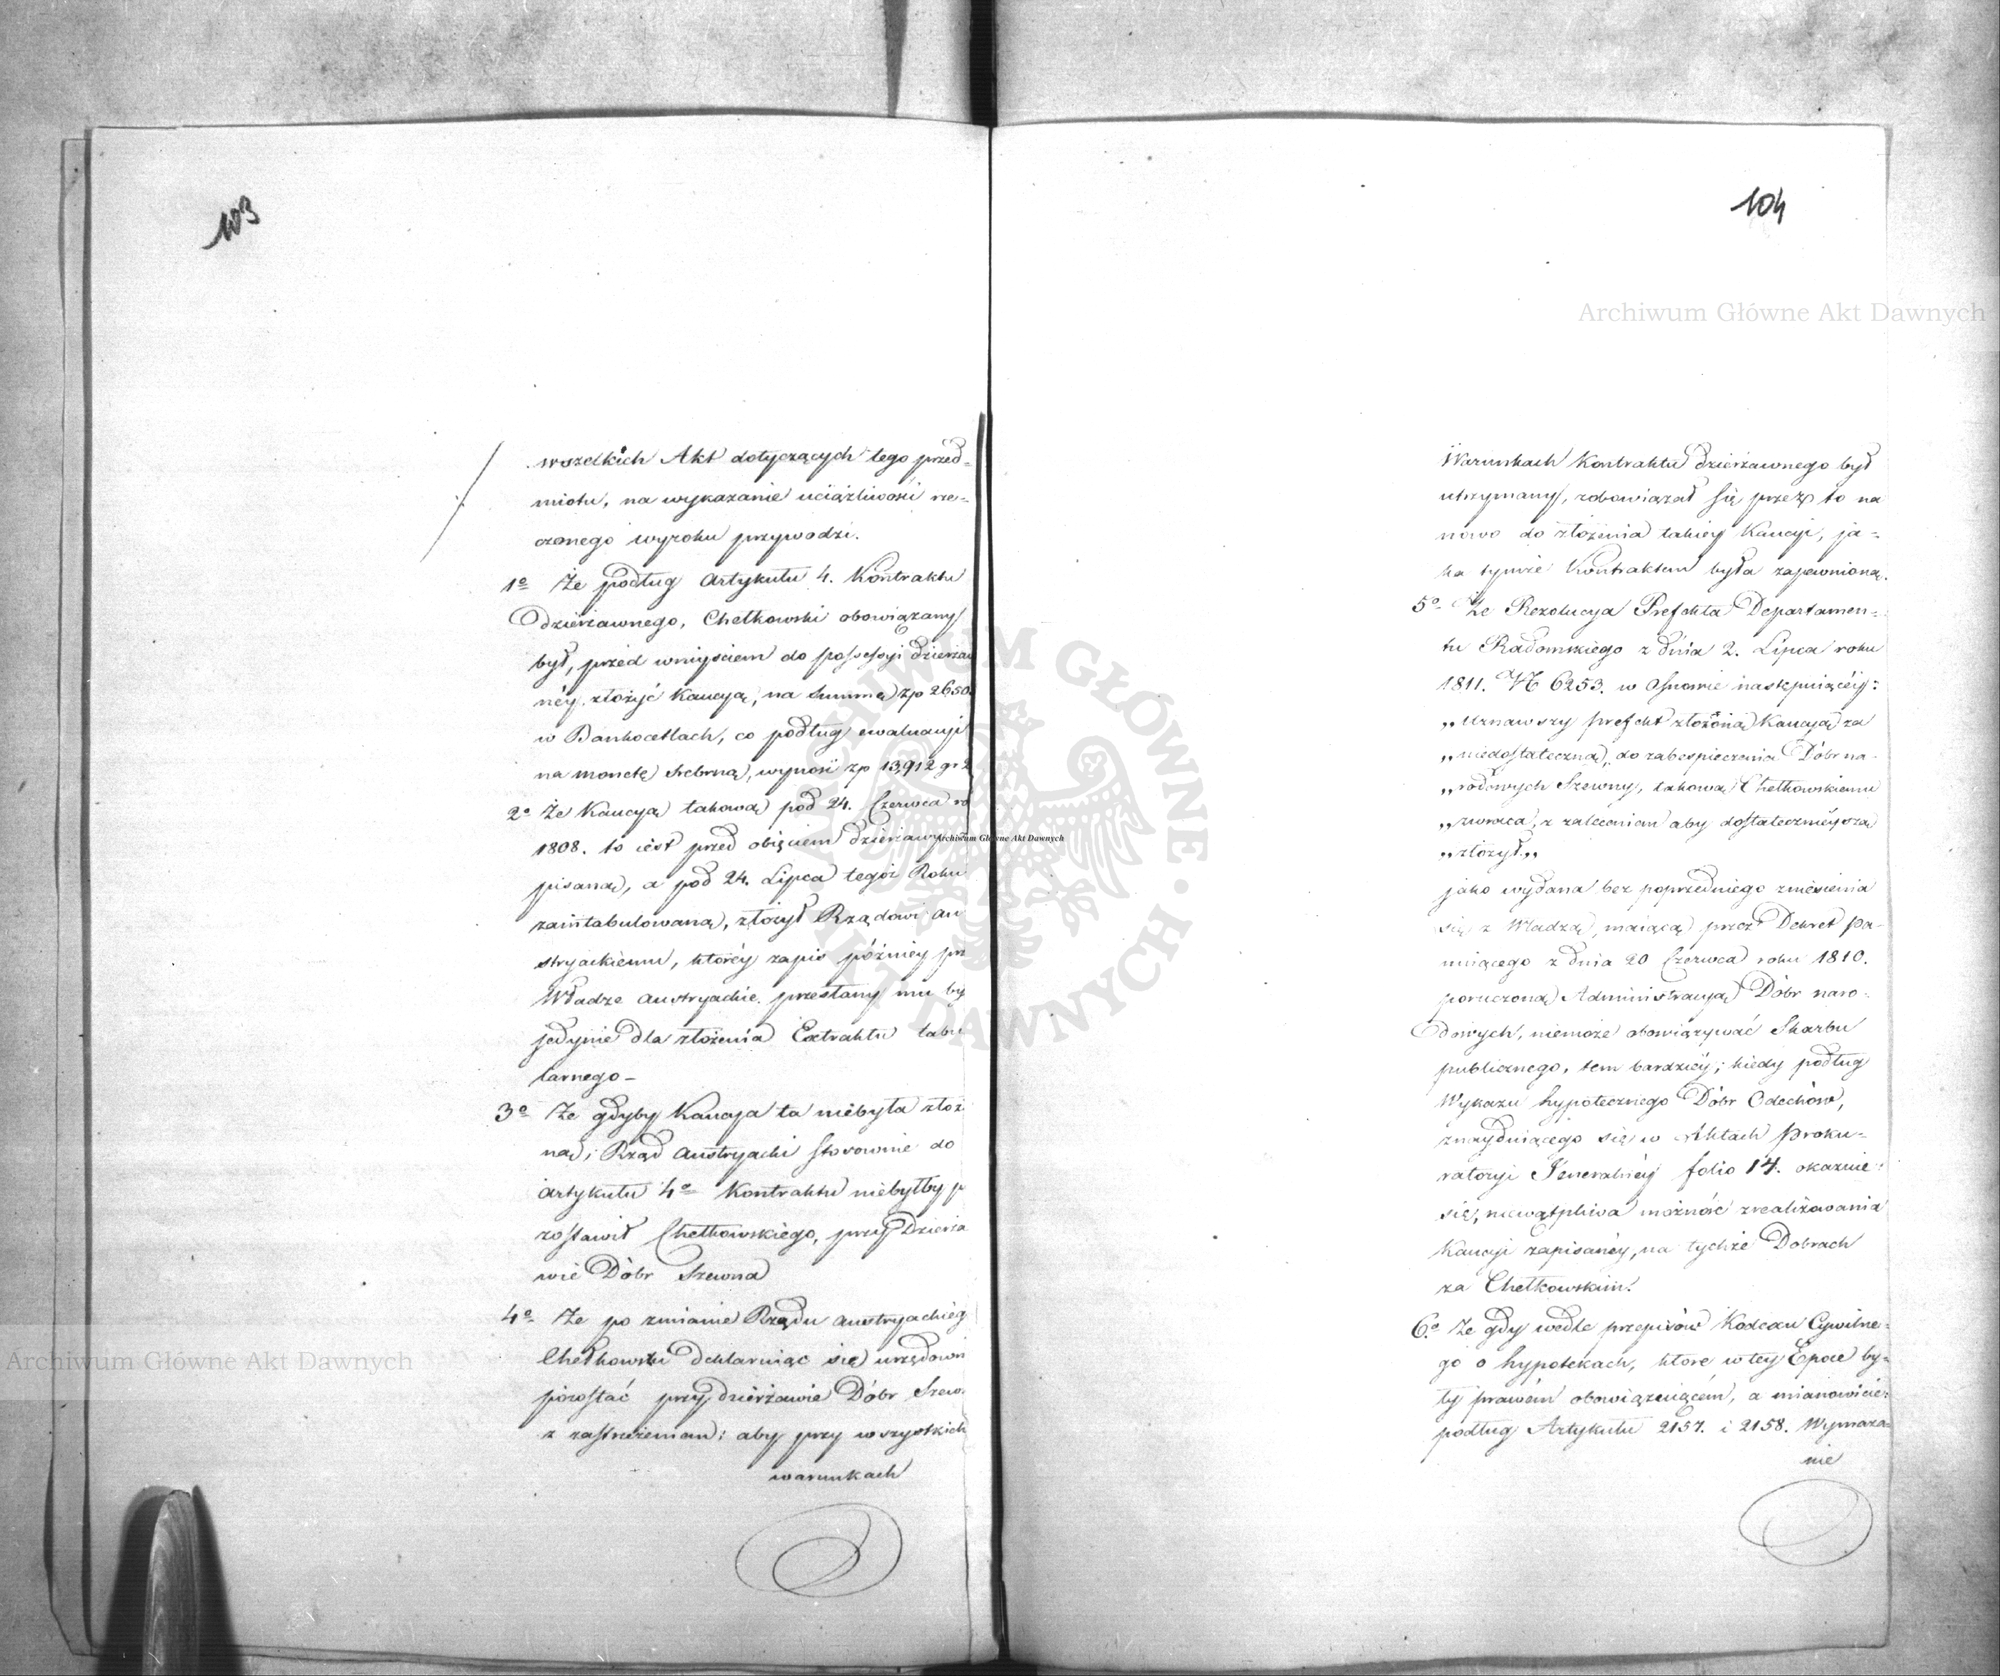 103
wszelkich Akt dotyczących tego przed-
miotu, na wykazanie uciążliwości rze-
czonego wyroku przywodzi.
1o Że podług Artykułu 4. Kontraktu
Dzierżawnego, Chełkowski obowiązany
był, przed wniyściem do possessyi dzierżaw
néy złożyć Kaucyą, na Summę zp 2650.
w Bankocetlach, co podług ewaluacyi
na monetę srebrną, wynosi zp 13,912 gr 2
2o Że Kaucyą takową pod 24. Czerwca ro
1808. to iest przed obięciem dzierżawy
pisaną, a pod 24. Lipca tegoż Roku
zaintabulowaną, złożył Rządowi Au
stryackiemu, któréy zapis późniey prz
Władze Austryackie przesłany mu by
jedynie dla złożenia Extraktu tabu
larnego –
3o Że gdyby Kaucya ta niebyła złoż
ną, Rząd Austryacki stosownie do
Artykułu 4o Kontraktu niebyłby p
zostawił Chełkowskiego, przy Dzierża
wie Dóbr Szewna
4o Że po zmianie Rządu Austryackieg
Chełkowski deklaruiąc się urzędown
pozostać przy dzierżawie Dóbr Szew.
z zastrzeżeniem: aby przy wszystkich
warunkach
104
Warunkach Kontraktu dzierżawnego był
utrzymany, zobowiązał się przez to na
nowo do złożenia takiey Kaucyi, ja-
ka tymże Kontraktem była zapewnioną.
5o Że Rezolucya Prefekta Departamen-
tu Radomskiego z dnia 2. Lipca roku
1811. No 6253. w Osnowie następuiącéy:
„Uznawszy prefekt złożoną Kaucyą za
„niedostateczną, do zabespieczenia Dóbr na-
„rodowych Szewny, takową Chełkowskiemu
„zwraca, z zaleceniem aby dostatecznieyszą
„złożył„
jako wydana bez poprzedniego zniesienia
się z Władzą, maiącą przez Dekret pa-
nuiącego z dnia 20 Czerwca roku 1810.
poruczoną Administracyą Dóbr naro-
dowych, niemoże obowiązywać Skarbu
publicznego, tem bardziéy; kiedy podług
Wykazu hypotecznego Dóbr Odechów,
znayduiącego się w Aktach Proku-
ratoryi Jeneralnéy folio 14. okazuie
się, niewątpliwa możność zrealizowania
Kaucyi zapisanéy, na tychże Dobrach
za Chełkowskim.
6o Że gdy wedle przepisów Kodexu Cywilne-
go o hypotekach, które w tey Epoce by-
ły prawem obowiązuiącém, a mianowicie:
podług Artykułu 2157. i 2158. Wymaza-
nie
Archiwum Główne Akt Dawnych
Archiwum Główne Akt Dawnych
Archiwum Główne Akt Dawnych
ARCHIWUM GŁÓWNE AKT DAWNYCH